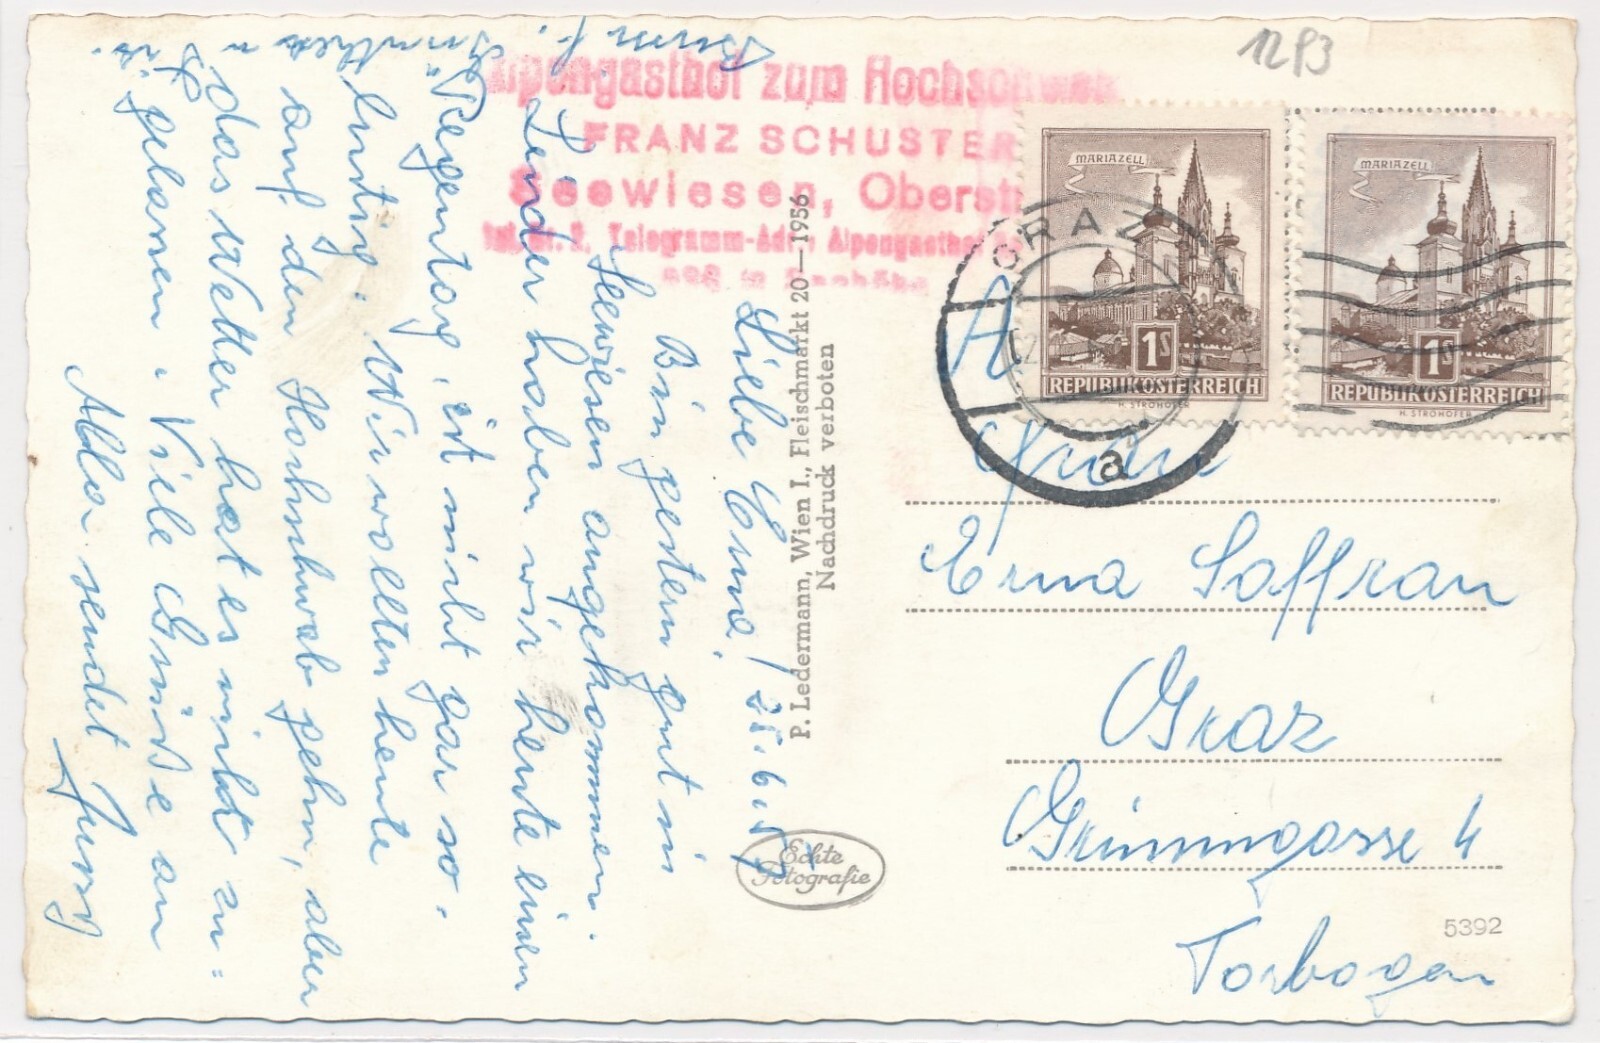 1293
Alpengasthof zum Hochschwab
FRANZ SCHUSTER
Seewiesen, Oberst
Tel. Nr. 2, Telegramm-Adr.: Alpengasthof
m Seehöhe
MARIAZELL
1S
REPUBLIK ÖSTERREICH
H. STROHOFER
MARIAZELL
1S
REPUBLIK ÖSTERREICH
H. STROHOFER
GRAZ
a
An
Erna Saffran
Graz
Grimmgasse 4
Torbogen
5392
P. Ledermann, Wien I., Fleischmarkt 20—1956
Nachdruck verboten
Echte
Fotografie
Liebe Erna! 25.6.
Bin gestern gut in
Seewiesen angekommen.
Leider haben wir heute einen
Regentag, ist nicht gar so
lustig. Wir wollten heute
auf den Hochschwab gehn, aber
das Wetter hat es nicht zu=
gelassen. Viele Grüße an
Alle sendet